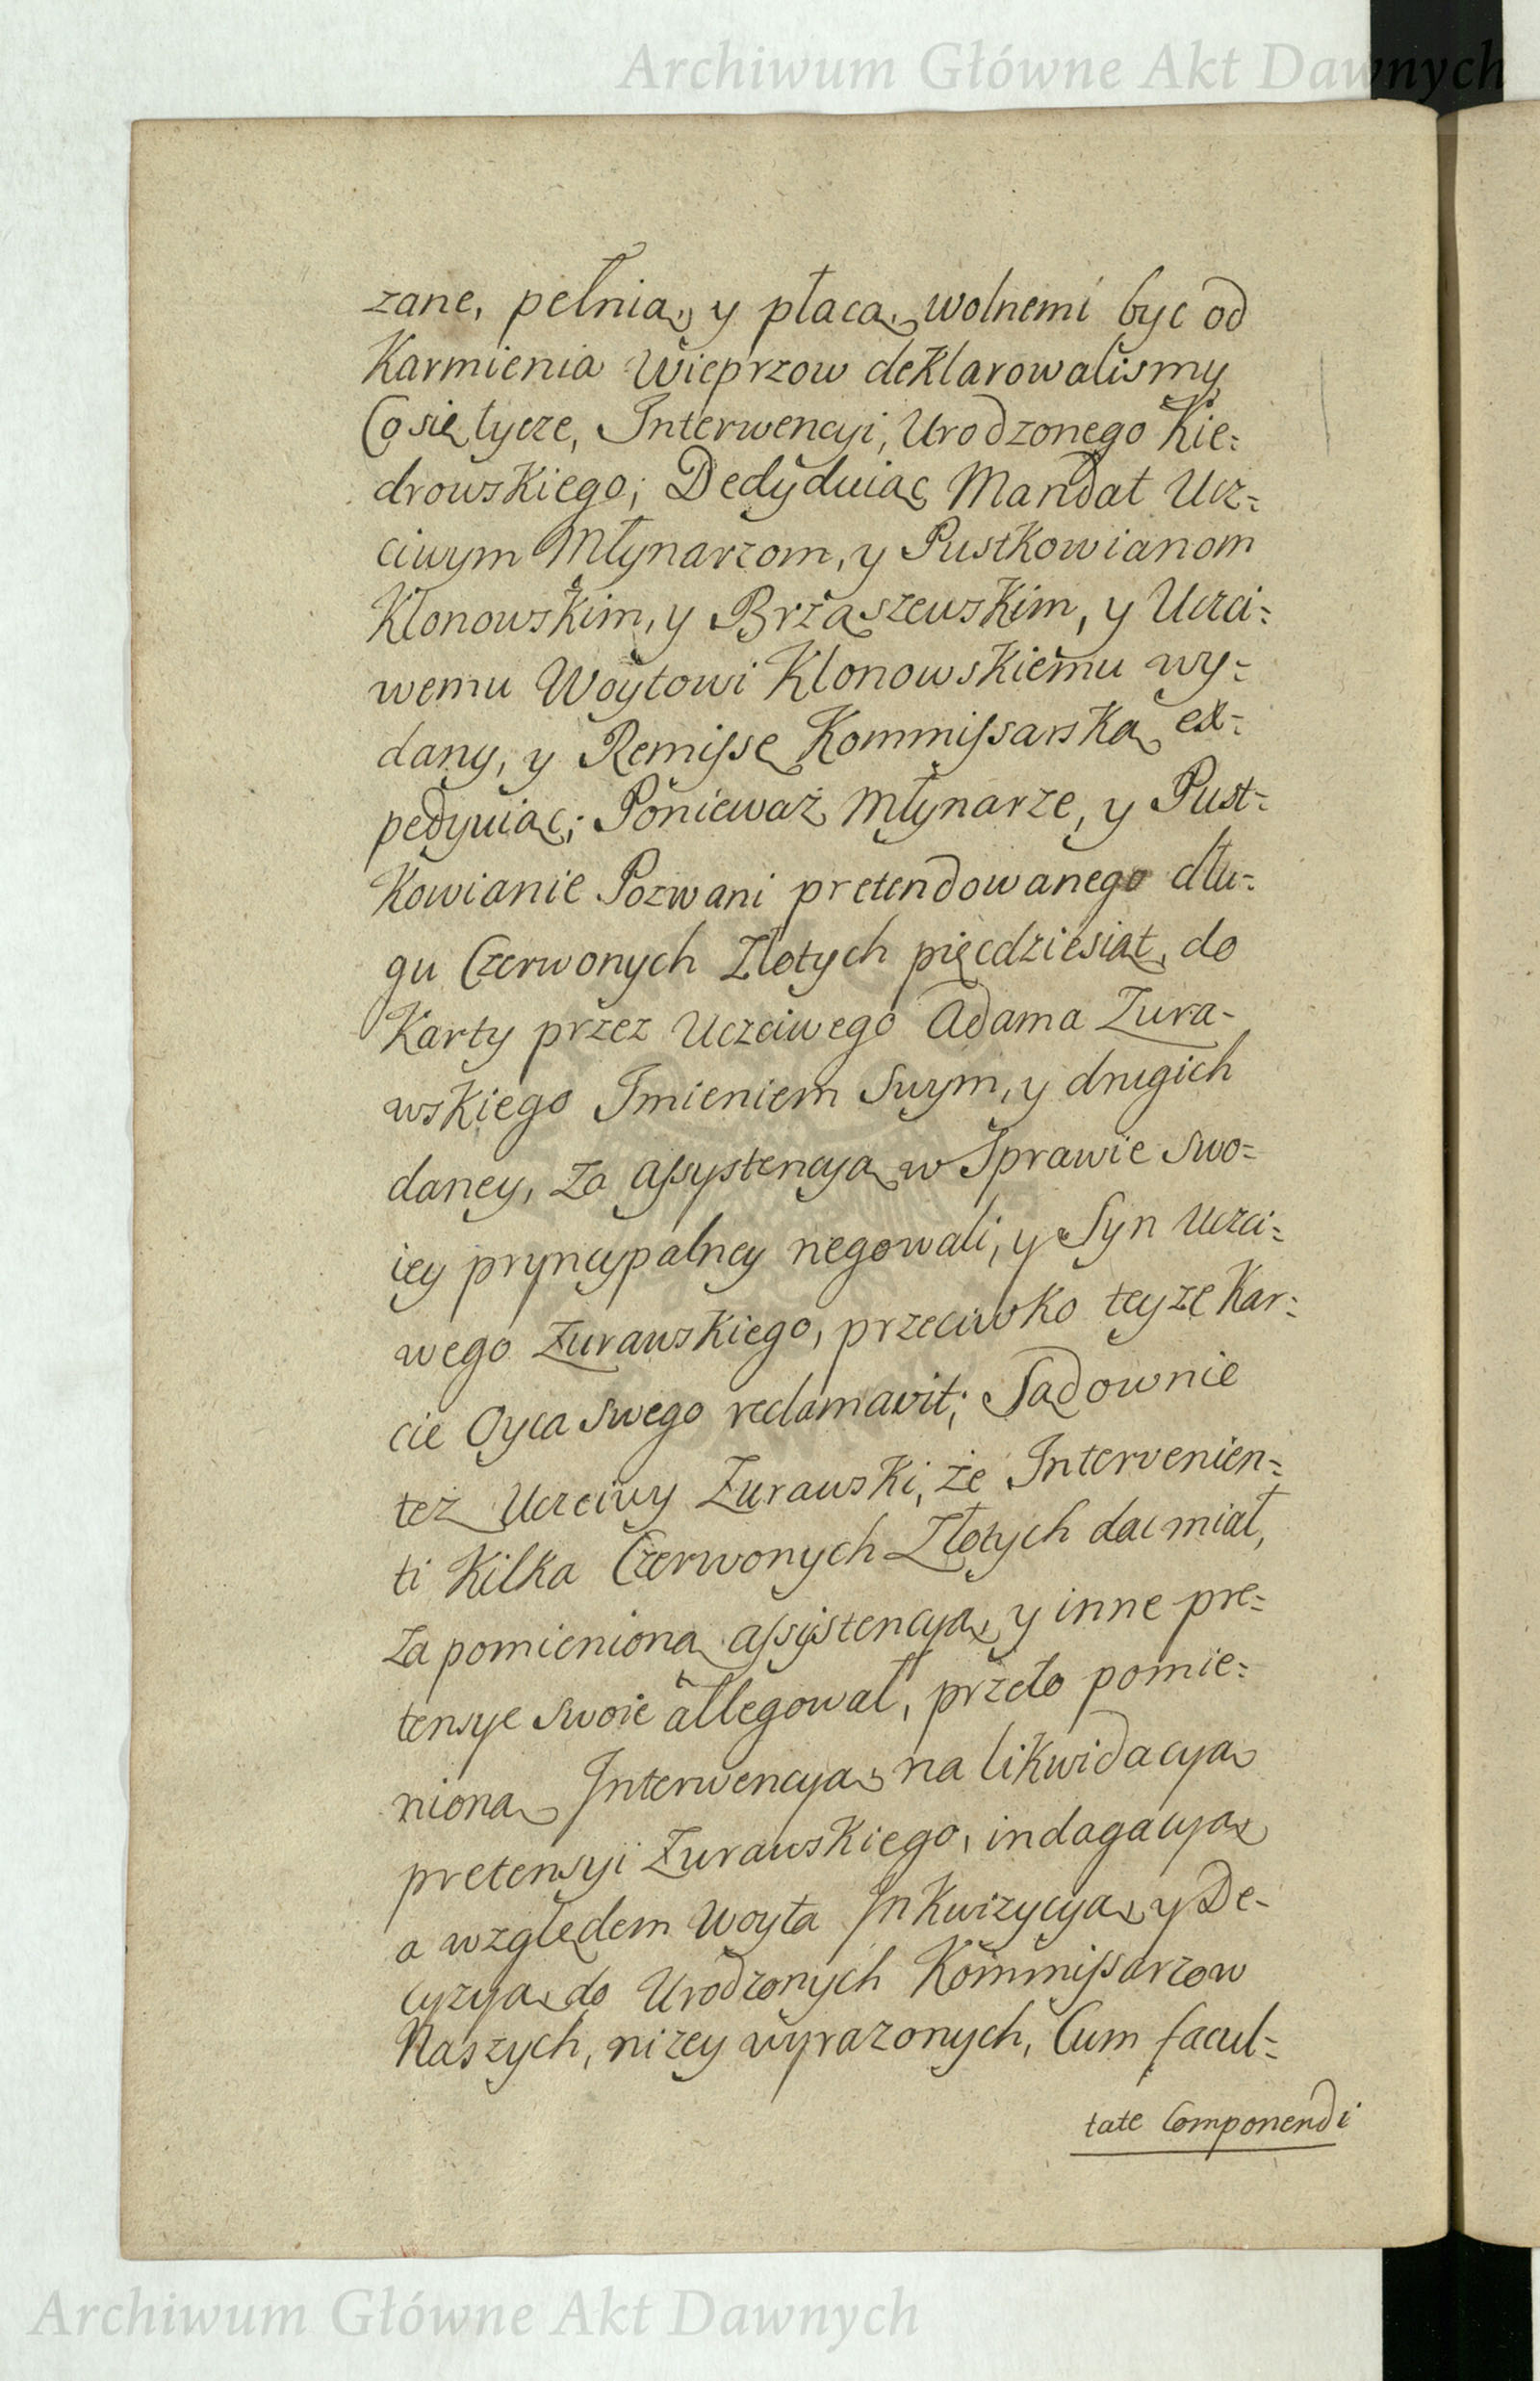 Archiwum Główne Akt Dawnych
zane, pełnią, y płacą, wolnemi byc od
Karmienia Wieprzow deklarowalismy
Co się tycze, Interwencyi, Urodzonego Kie=
drowskiego; Dedyduiąc Mandat Ucz=
ciwym Młynarzom, y Pustkowianom
Klonowskim, y Brząszewskim, y Uczci=
wemu Woytowi Klonowskiemu wy=
dany, y Remissę Kommissarską ex=
pedyuiąc; Ponieważ Młynarze, y Pust=
kowianie Pozwani pretendowanego dłu=
gu Czerwonych Złotych pięcdziesiąt, do
Karty przez Uczciwego Adama Zura-
wskiego Imieniem Swym, y drugich
daney, za assystencyą w Sprawie swo=
iey pryncypalney negowali, y Syn Uczci=
wego Zurawskiego, przeciwko teyze Kar=
cie Oyca swego reclamavit; Sądownie
też Uczciwy Zurawski, że Intervenien=
ti Kilka Czerwonych Złotych dac miał,
za pomienioną assystencyą, y inne pre=
tensye swoie allegował, przeto pomie=
nioną Interwencyą, na likwidacyą
pretensyi Zurawskiego, indagacyą
a względem Woyta Inkwizycyą, y De-
cyzyą do Urodzonych Kommissarzow
Naszych, nizey wyrazonych, Cum facul=
tate Componendi
Archiwum Główne Akt Dawnych